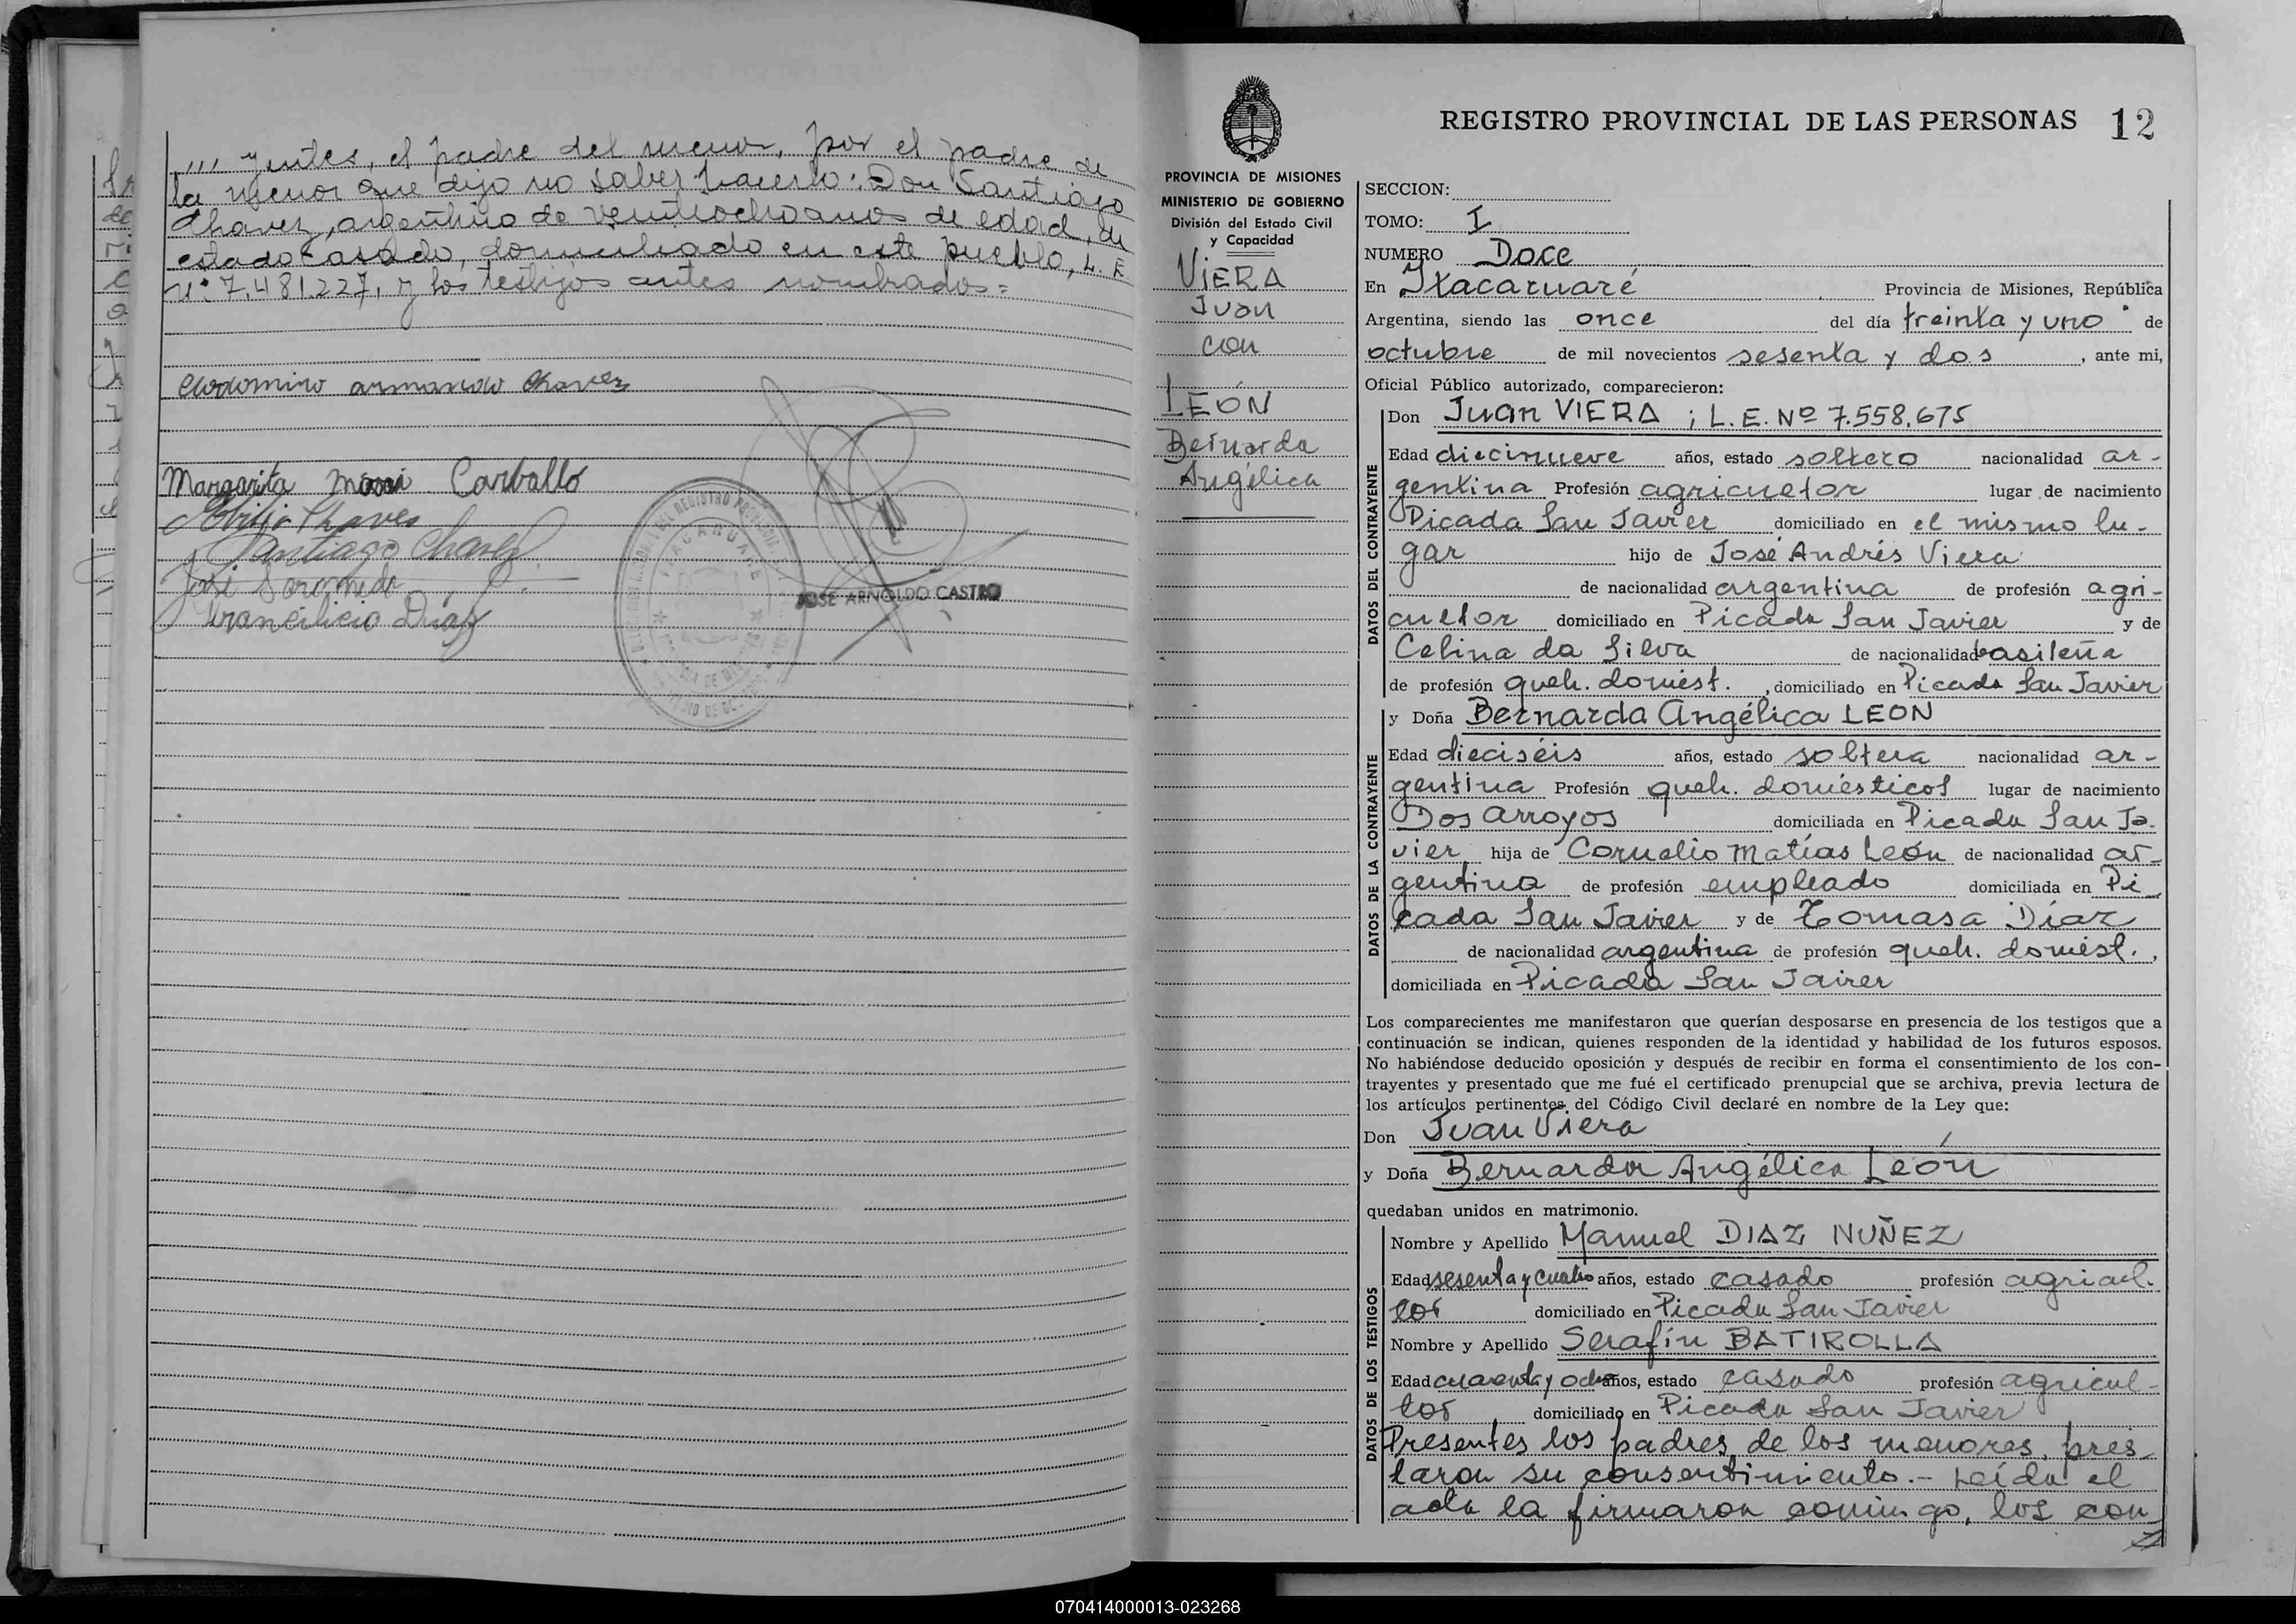 ,,, yentes, el padre del menor, por el padre de
la menor que dijo no saber hacerlo: Don Santiago
Chavez, argentino de veintiocho años de edad, de
estado casado, domiciliado en este pueblo, L. E.
Nº 7.481.227, y los testigos antes nombrados=
Clodomiro armando Chavez
Margarita Carballo
Chaves
Santiago Chavez
José
Diaz
JOSE ARNOLDO CASTRO
PROVINCIA DE MISIONES
MINISTERIO DE GOBIERNO
División del Estado Civil
y Capacidad
VIERA
Juan
con
LEÓN
Bernarda
Angélica
REGISTRO PROVINCIAL DE LAS PERSONAS 12
SECCION:
TOMO: I
NUMERO Doce
En Itacaruaré Provincia de Misiones, República
Argentina, siendo las once del día treinta y uno de
octubre de mil novecientos sesenta y dos, ante mi,
Oficial Público autorizado, comparecieron:
Don Juan VIERA ; L.E. Nº 7.558.675
DATOS DEL CONTRAYENTE
Edad diecinueve años, estado soltero nacionalidad ar-
gentina Profesión agricultor lugar de nacimiento
Picada San Javier domiciliado en el mismo lu-
gar hijo de José Andrés Viera
de nacionalidad argentina de profesión agri-
cultor domiciliado en Picada San Javier y de
Celina da Silva de nacionalidad brasileña
de profesión queh. domést. , domiciliado en Picada San Javier
y Doña Bernarda Angélica LEON
DATOS DE LA CONTRAYENTE
Edad dieciséis años, estado soltera nacionalidad ar-
gentina Profesión queh. domésticos lugar de nacimiento
Dos Arroyos domiciliada en Picada San Ja-
vier hija de Cornelio Matías León de nacionalidad ar-
gentina de profesión empleado domiciliada en Pi-
cada San Javier y de Tomasa Díaz
de nacionalidad argentina de profesión queh. domést. ,
domiciliada en Picada San Javier
Los comparecientes me manifestaron que querían desposarse en presencia de los testigos que a
continuación se indican, quienes responden de la identidad y habilidad de los futuros esposos.
No habiéndose deducido oposición y después de recibir en forma el consentimiento de los con-
trayentes y presentado que me fué el certificado prenupcial que se archiva, previa lectura de
los artículos pertinentes del Código Civil declaré en nombre de la Ley que:
Don Juan Viera
y Doña Bernarda Angélica León
quedaban unidos en matrimonio.
DATOS DE LOS TESTIGOS
Nombre y Apellido Manuel DIAZ NUÑEZ
Edad sesenta y cuatro años, estado casado profesión agricul-
tor domiciliado en Picada San Javier
Nombre y Apellido Serafín BATIROLLA
Edad cuarenta y ocho años, estado casado profesión agricul-
tor domiciliado en Picada San Javier
Presentes los padres de los menores, pres-
taron su consentimiento.- Leída el
acta la firmaron comingo, los con-
070414000013-023268